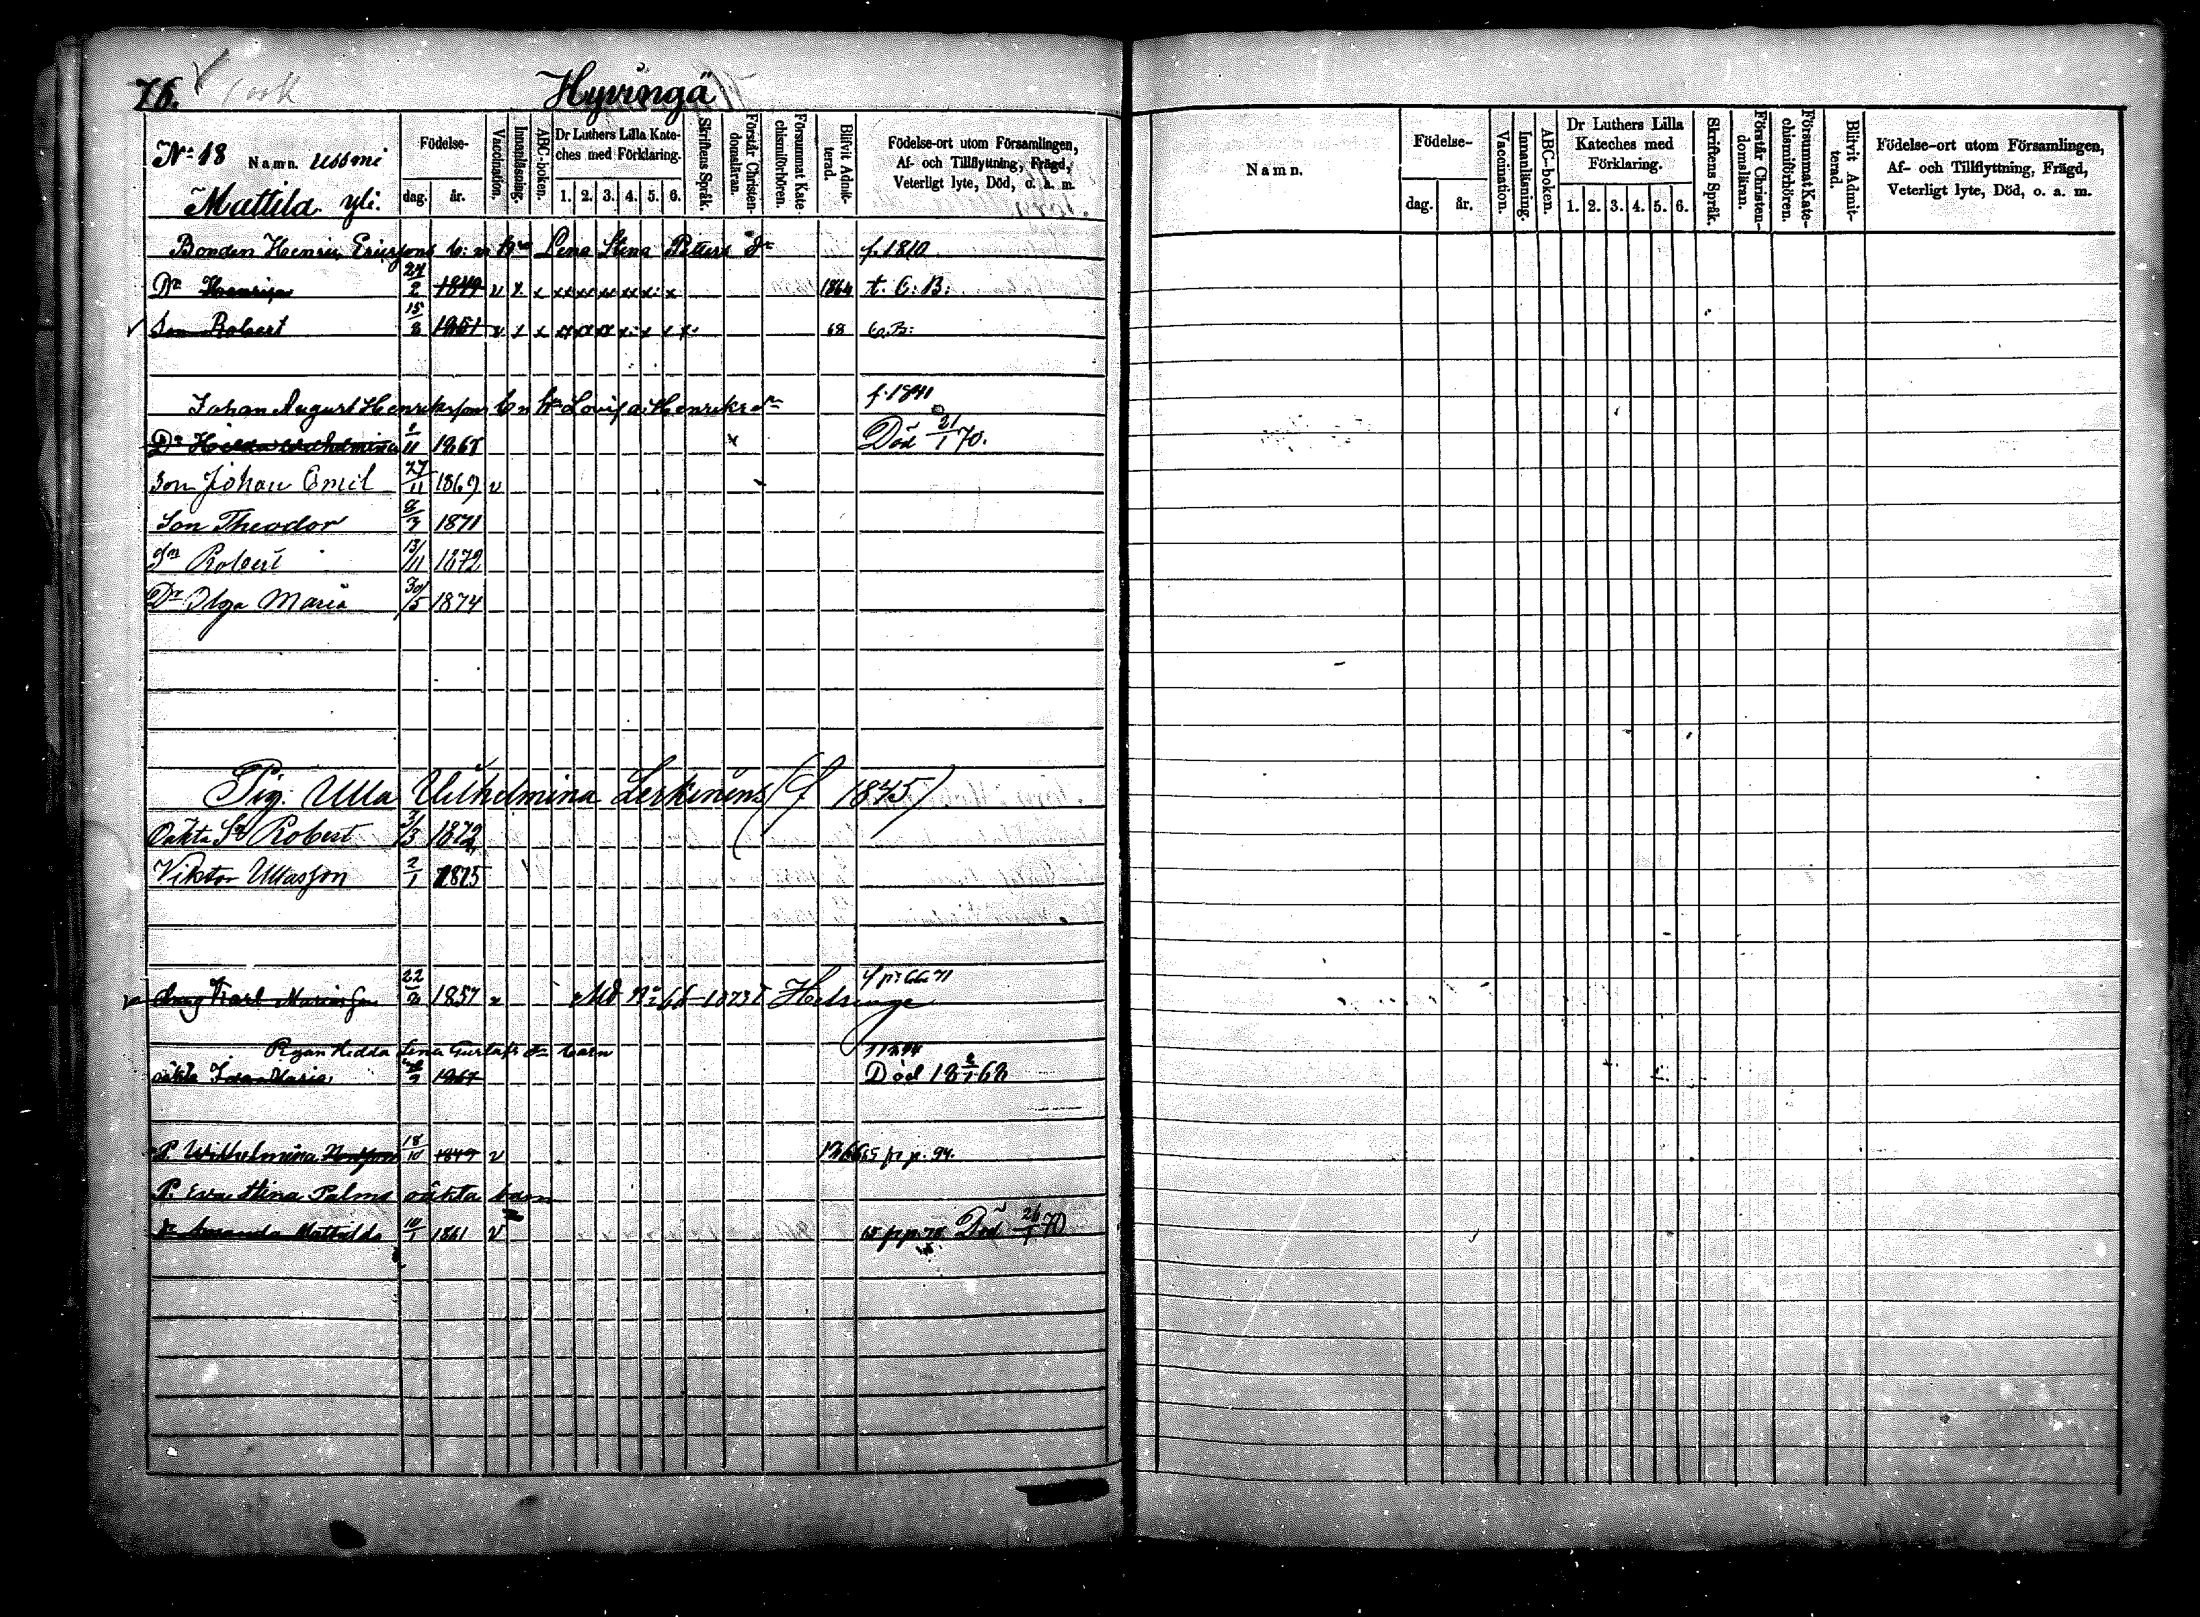 76.
Hyvingä
No 18 Namn. Ussmi
Mattila yli.
Födelse-
dag. år.
Vaccination.
Innanläsning.
ABC-boken.
Dr Luthers Lilla Kate-
ches med Förklaring.
1. 2. 3. 4. 5. 6.
Skriftens Språk.
Förstår Christen-
domsläran.
Försummat Kate-
chismiförhören.
Blifvit Admit-
terad.
Födelse-ort utom Församlingen,
Af- och Tillflyttning, Frägd,
Veterligt lyte, Död, o. a. m.
Bonden Henric Ericssons b: m h:u Lena Stina Petters dr f. 1810
Dr 27/2 1844 v x. x xx xx xx xx x: x 1864 t. C: B:
Son Robert 15/8 1851 v x x xx xx xx x: x x x. 68 C.B:
Johan August Henrikssons b m h:u Lovisa Henriks dr f. 1841
Dr Hilda Wilhelmina 11 1868 x Död 21/1 70.
Son Johan Emil 27/11 1869 v
Son Theodor 8/7 1871
Sn Robert 13/11 1872
Dr Olga Maria 30/5 1874
Pig. Ulla Vilhelmina Lerkinens (f 1845)
Oäkta Sn Robert /3 1872
Viktor Ullasson 2/1 1875
Karl 22 1857 v Md No 66 1873 t Helsinge
Pigan Hedda Lena Gustafs dr barn
oäkta Maria 1867 Död 18 2/1 68
P. Wilhelmina 18/10 1849 v 1866 pr p. 94.
P. Eva Stina Palms oäkta barn
dr Amanda Mathilda 10/1 1861 v 15 pr p. Död 26/1 70
Namn.
Födelse-
dag. år.
Vaccination.
Innanläsning.
ABC-boken.
Dr Luthers Lilla
Kateches med
Förklaring.
1. 2. 3. 4. 5. 6.
Skriftens Språk.
Förstår Christen-
domsläran.
Försummat Kate-
chismiförhören.
Blifvit Admit-
terad.
Födelse-ort utom Församlingen,
Af- och Tillflyttning, Frägd,
Veterligt lyte, Död, o. a. m.